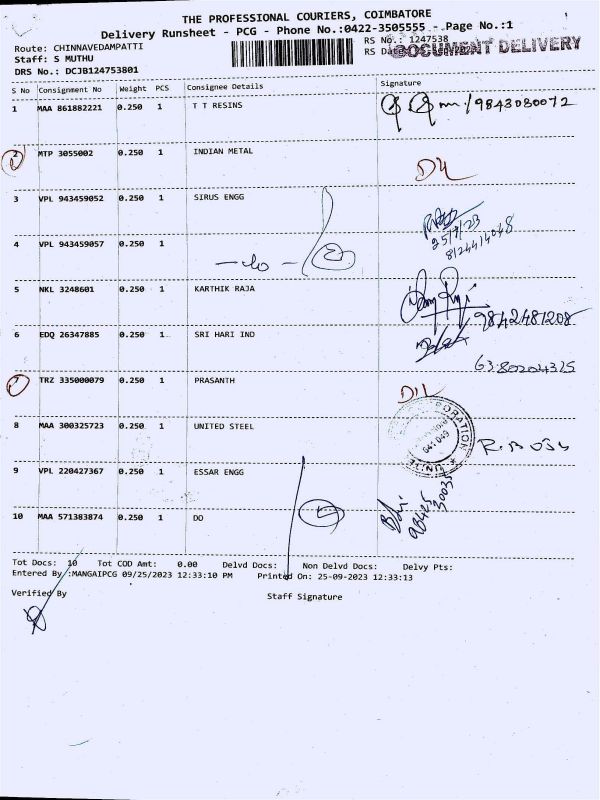 THE PROFESSIONAL COURIERS, COIMBATORE
Delivery Runsheet - PCG - Phone No.:0422-3505555 - Page No.:1
Route: CHINNAVEDAMPATTI RS No.: 1247538
Staff: S MUTHU RS Da DOCUMENT DELIVERY
DRS No.: DCJB124753801
S No Consignment No Weight PCS Consignee Details Signature
1 MAA 861882221 0.250 1 T T RESINS 9843080072
2 MTP 3055002 0.250 1 INDIAN METAL DIL
3 VPL 943459052 0.250 1 SIRUS ENGG
25/9/23
8124414048
4 VPL 943459057 0.250 1 -do-
5 NKL 3248601 0.250 1 KARTHIK RAJA
9842481208
6 EDQ 26347885 0.250 1 SRI HARI IND
6380204325
7 TRZ 335000079 0.250 1 PRASANTH DIL
8 MAA 300325723 0.250 1 UNITED STEEL
641 049
9 VPL 220427367 0.250 1 ESSAR ENGG
10 MAA 571383874 0.250 1 DO
Tot Docs: 10 Tot COD Amt: 0.00 Delvd Docs: Non Delvd Docs: Delvy Pts:
Entered By :MANGAIPCG 09/25/2023 12:33:10 PM Printed On: 25-09-2023 12:33:13
Verified By Staff Signature